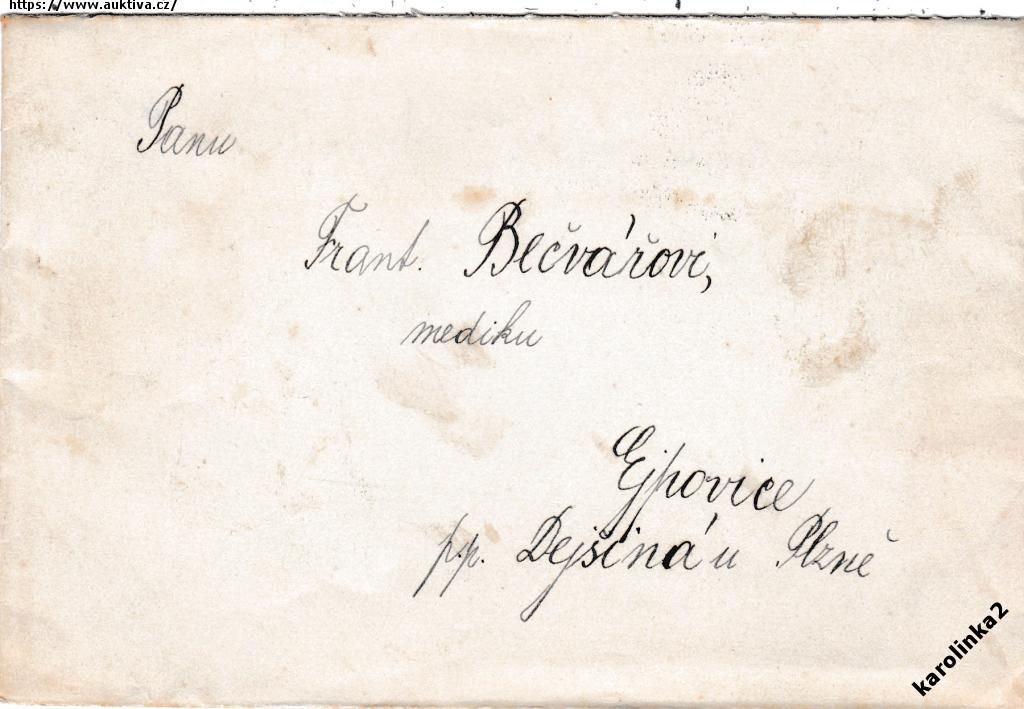 https://www.auktiva.cz/
Panu
Frant. Bečvářovi,
mediku
Ejpovice
p.p. Dejšiná u Plzně
karolinka2